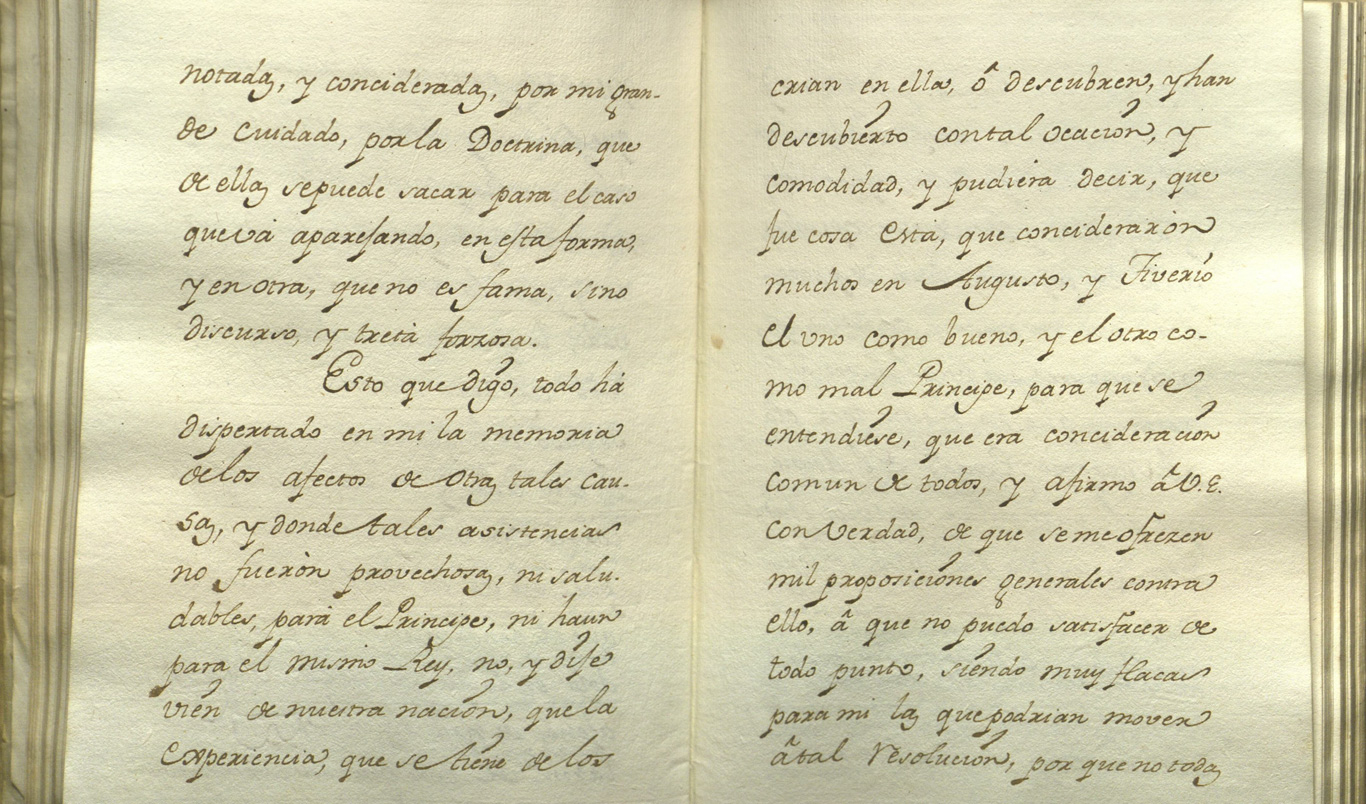 notadas, y concideradas, por mi gran-
de Cuidado, por la Doctrina, que
de ellas sepuede sacar para el caso
que và aparejando, en esta forma,
y en otra, que no es fama, sino
discurso, y tretà forzosa.
Esto que digo, todo hà
dispertado en mi la memoria
de los afectos de Otras tales Cau-
sas, y donde tales asistencias
no fueròn provechosas, ni salu-
dables, parà el Principe, ni haun
para èl mismo Rey, no, y dije
vien de nuestra naciòn, que la
experiencia, que se tiene de los
crian en ella, ô descubren, y han
descubierto con tal ocaciòn, y
comodidad, y pudièra decir, que
fue cosa Esta, que conciderarón
muchos en Augusto, y Tiverío
el uno como bueno, y el otro co-
mo mal Principe, para que se
entendièse, que era concideraciòn
Comun de todos, y afirmo â V.E.
con Verdad, de que seme ofrezen
mil proposiciònes generales contra
ello, â que no puedo satisfacer de
todo punto, sièndo muy flacas
para mi las que podrian mover
â tal resoluciòn, por que no todas